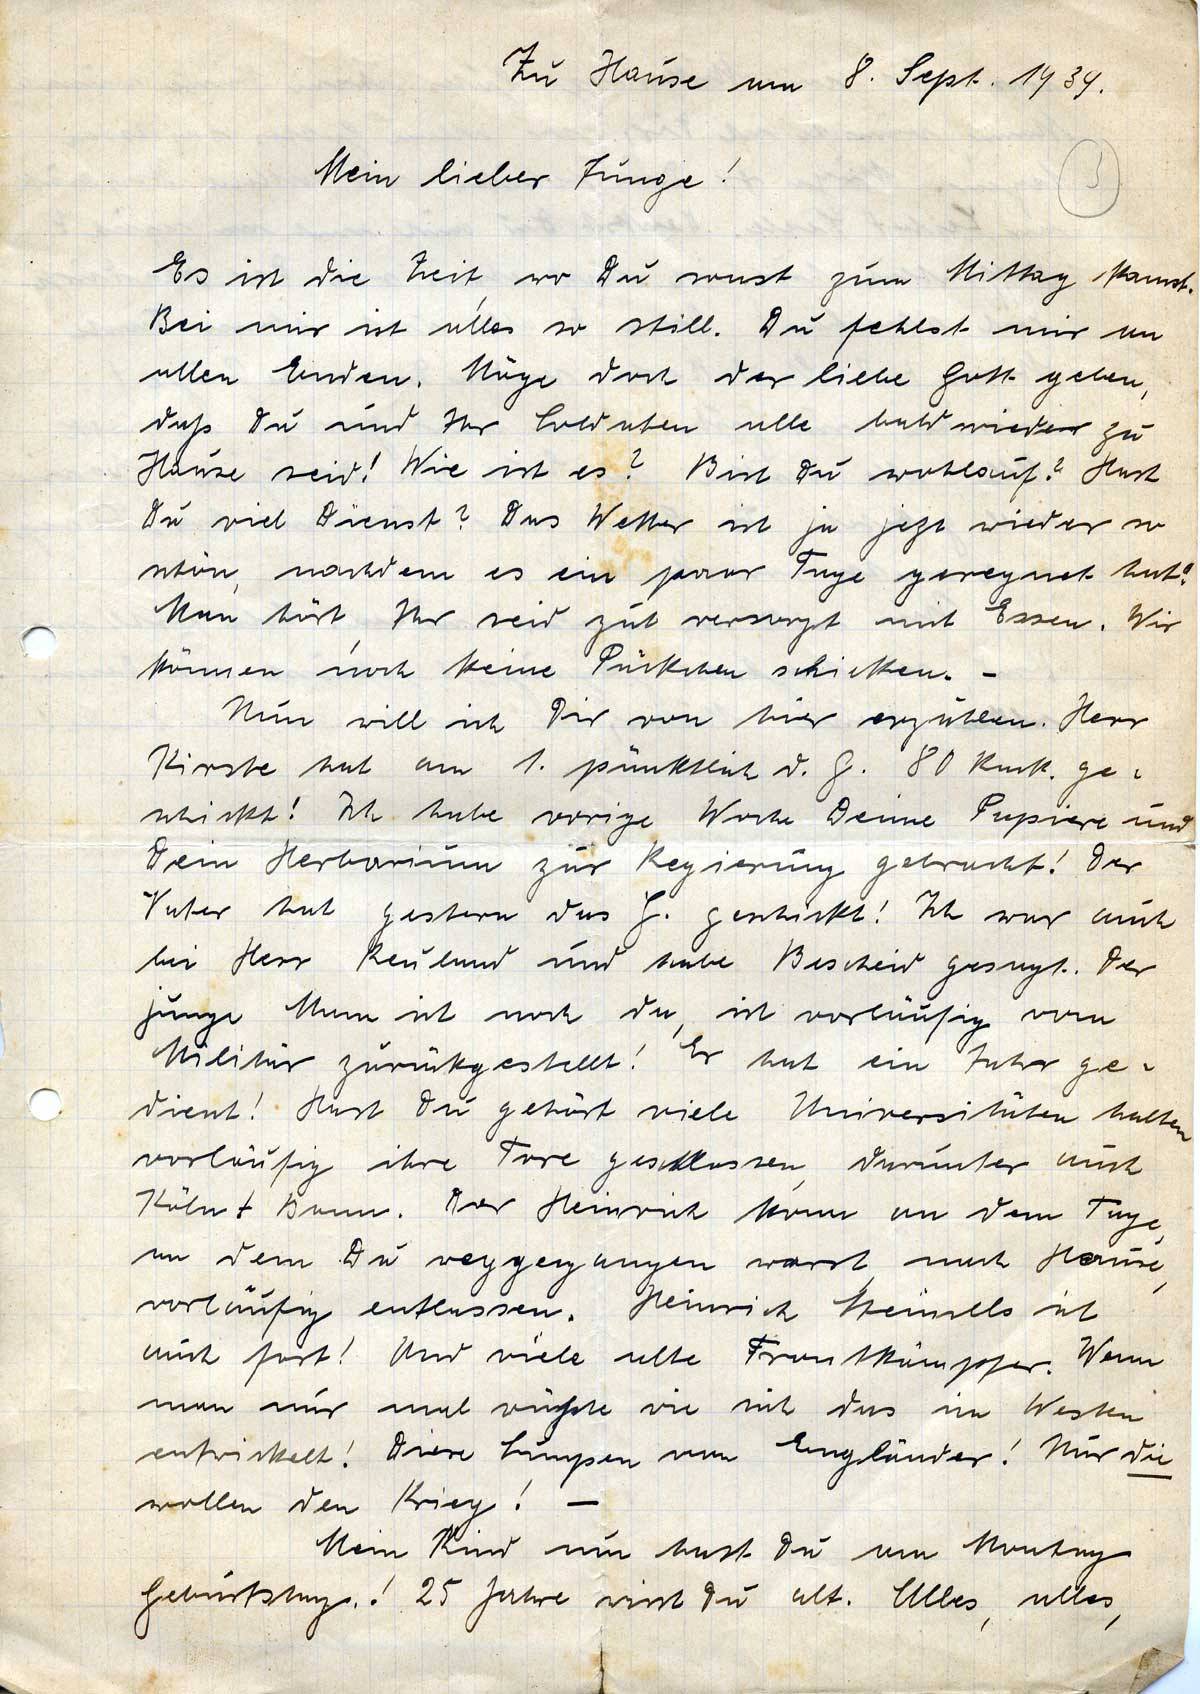 Zu Hause am 8. Sept. 1939.
Mein lieber Junge!
Es ist die Zeit, wo Du sonst zum Mittag kamst.
Bei mir ist alles so still. Du fehlst mir an
allen Enden. Möge doch der liebe Gott geben,
daß Du und Ihr Soldaten alle bald wieder zu
Hause seid! Wie ist es? Bist Du wohlauf? Hast
Du viel Dienst? Das Wetter ist ja jetzt wieder so
schön, nachdem es ein paar Tage geregnet hat!
Man hört, Ihr seid gut versorgt mit Essen. Wir
können noch keine Päckchen schicken. –
Nun will ich Dir von hier erzählen. Herr
Kirste hat am 1. pünktlich d. G. 80 Rmk. ge-
schickt! Ich habe vorige Woche Deine Papiere und
Dein Herbarium zur Regierung gebracht! Der
Vater hat gestern das G. geschickt! Ich war auch
bei Herr Reuland und habe Bescheid gesagt. Der
junge Mann ist noch da, ist vorläufig vom
Militär zurückgestellt! Er hat ein Jahr ge-
dient! Hast Du gehört viele Universitäten halten
vorläufig ihre Tore geschlossen, darunter auch
Köln + Bonn. Der Heinrich kam an dem Tage,
an dem Du weggegangen warst, nach Hause,
vorläufig entlassen. Heinrich ist
auch fort! Und viele alte Frontkämpfer. Wenn
man nur mal wüßte wie sich das im Westen
entwickelt! Diese Lumpen von Engländer! Nur die
wollen den Krieg! –
Mein Kind nun hast Du am Montag
Geburtstag.! 25 Jahre wirst Du alt. Alles, alles,